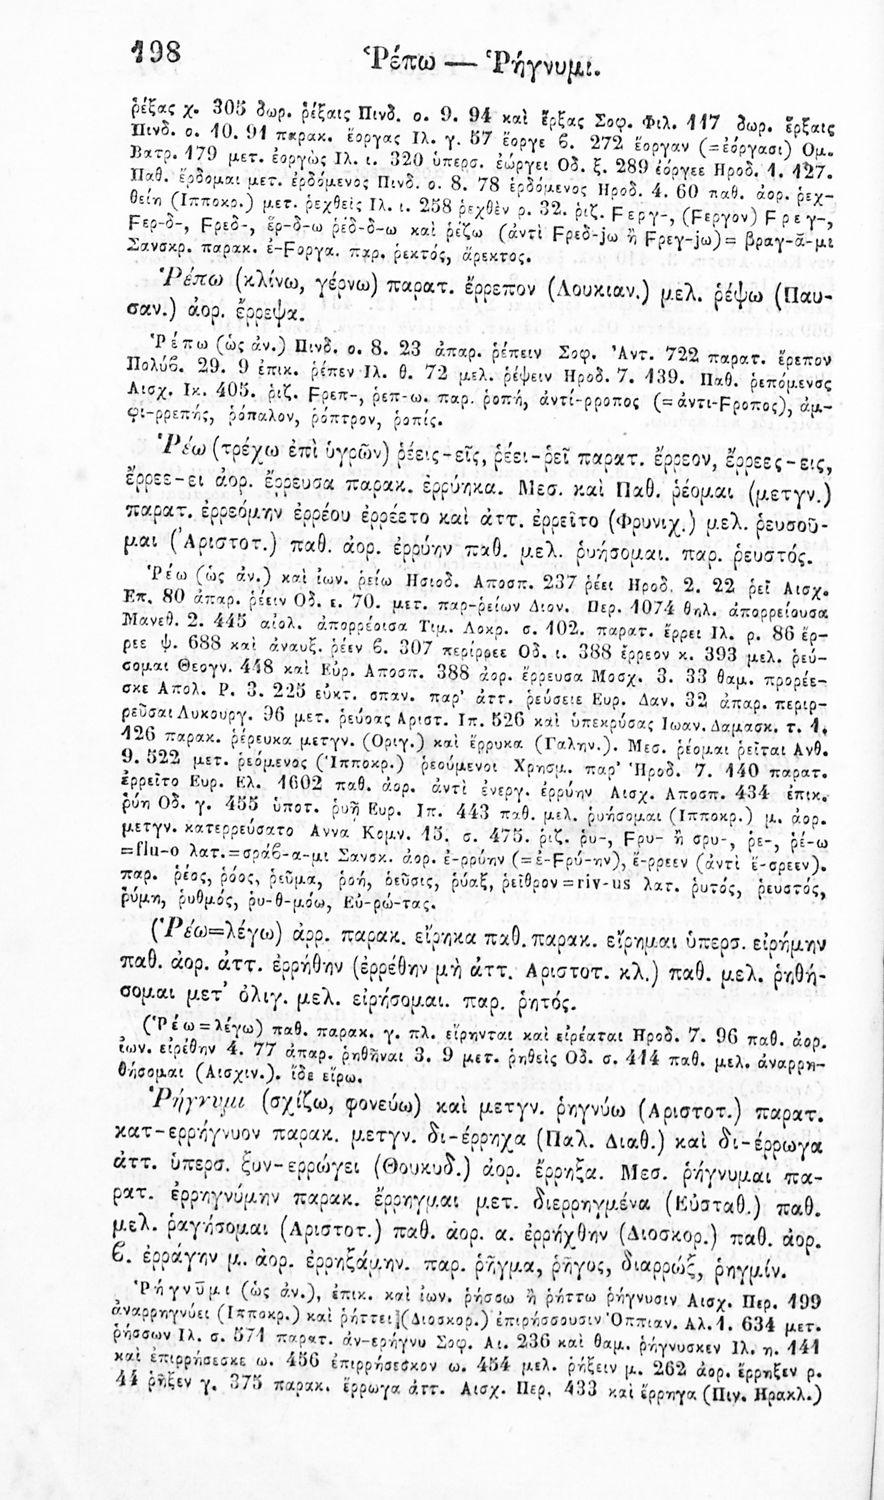 198
Ῥέπω — Ῥήγνυμι.
ῥέξας χ. 305 δωρ. ῥέξαις Πινδ. ο. 9. 94 καὶ ἔρξας Σοφ. Φιλ. 117 δωρ. ἔρξαις
Πινδ. ο. 10. 91 παρακ. ἔοργας Ιλ. γ. 57 ἔοργε β. 272 ἔοργαν (=ἐόργασι) Ομ.
Βατρ. 179 μετ. ἐοργὼς Ιλ. ι. 320 ὑπερσ. ἐώργει Οδ. ξ. 289 ἐόργεε Ηροδ. 1. 127.
Παθ. ἔρδομαι μετ. ἐρδόμενος Πινδ. ο. 8. 78 ἐρδόμενος Ηροδ. 4. 60 παθ. ἀορ. ῥεχ-
θείη (Ιπποκρ.) μετ. ῥεχθεὶς Ιλ. ι. 258 ῥεχθὲν ρ. 32. ῥιζ. Ϝεργ-, (Ϝεργον) Ϝρεγ-,
Ϝερ-δ-, Ϝρεδ-, ἔρ-δ-ω ῥέδ-δ-ω καὶ ῥέζω (ἀντὶ Ϝρεδ-jω ἢ Ϝρεγ-jω)= βραγ-ᾶ-μι
Σανσκρ. παρακ. ἐ-Ϝοργα. παρ. ῥεκτός, ἄρεκτος.
Ῥέπω (κλίνω, γέρνω) παρατ. ἔρρεπον (Λουκιαν.) μελ. ῥέψω (Παυ-
σαν.) ἀορ. ἔρρεψα.
Ῥέπω (ὡς ἀν.) Πινδ. ο. 8. 23 ἀπαρ. ῥέπειν Σοφ. Ἀντ. 722 παρατ. ἔρεπον
Πολύβ. 29. 9 ἐπικ. ῥέπεν Ιλ. θ. 72 μελ. ῥέψειν Ηροδ. 7. 139. Παθ. ῥεπόμενος
Αισχ. Ικ. 405. ῥιζ. Ϝρεπ-, ῥεπ-ω. παρ. ῥοπή, ἀντί-ρροπος (=ἀντι-Ϝροπος), ἀμ-
φι-ρρεπής, ῥόπαλον, ῥόπτρον, ῥοπίς.
Ῥέω (τρέχω ἐπὶ ὑγρῶν) ῥέεις-εῖς, ῥέει-ῥεῖ παρατ. ἔρρεον, ἔρρεες-εις,
ἔρρεε-ει ἀορ. ἔρρευσα παρακ. ἐρρύηκα. Μεσ. καὶ Παθ. ῥέομαι (μετγν.)
παρατ. ἐρρεόμην ἐρρέου ἐρρέετο καὶ ἀττ. ἐρρεῖτο (Φρυνιχ.) μελ. ῥευσοῦ-
μαι (Ἀριστοτ.) παθ. ἀορ. ἐρρύην παθ. μελ. ῥυήσομαι. παρ. ῥευστός.
Ῥέω (ὡς ἀν.) καὶ ἰων. ῥείω Ησιοδ. Αποσπ. 237 ῥέει Ηροδ. 2. 22 ῥεῖ Αισχ.
Επ. 80 ἀπαρ. ῥέειν Οδ. ε. 70. μετ. παρ-ρείων Διον. Περ. 1074 θηλ. ἀπορρείουσα
Μανεθ. 2. 445 αἰολ. ἀπορρέοισα Τιμ. Λοκρ. σ. 102. παρατ. ἔρρει Ιλ. ρ. 86 ἔρ-
ρεε ψ. 688 καὶ ἀναυξ. ῥέεν β. 307 περίρρεε Οδ. ι. 388 ἔρρεον κ. 393 μελ. ῥεύ-
σομαι Θεογν. 448 καὶ Εὐρ. Αποσπ. 388 ἀορ. ἔρρευσα Μοσχ. 3. 33 θαμ. προρέε-
σκε Απολ. Ρ. 3. 225 εὐκτ. σπαν. παρ' ἀττ. ῥεύσειε Ευρ. Δαν. 32 ἀπαρ. περιρ-
ρεῦσαι Λυκουργ. 96 μετ. ῥεύσας Αριστ. Ιπ. 526 καὶ ὑπεκρύσας Ιωαν. Δαμασκ. τ. 1.
426 παρακ. ῥέρευκα μετγν. (Οριγ.) καὶ ἔρρυκα (Γαλην.). Μεσ. ῥέομαι ῥεῖται Ανθ.
9. 522 μετ. ῥεόμενος (Ἱπποκρ.) ῥεούμενοι Χρησμ. παρ' Ἡροδ. 7. 140 παρατ.
ἐρρεῖτο Ευρ. Ελ. 1602 παθ. ἀορ. ἀντὶ ἐνεργ. ἐρρύην Αισχ. Αποσπ. 434 ἐπικ.
ῥύη Οδ. γ. 455 ὑποτ. ῥυῇ Ευρ. Ιπ. 443 παθ. μελ. ῥυήσομαι (Ιπποκρ.) μ. ἀορ.
μετγν. κατερρεύσατο Αννα Κομν. 15. σ. 475. ῥιζ. ῥυ-, Ϝρυ- ἢ σρυ-, ῥε-, ῥέ-ω
=flu-o λατ.=σράβ-α-μι Σανσκ. ἀορ. ἐ-ρρύην (=ἐ-Ϝρύ-ην), ἔ-ρρεεν (ἀντὶ ἔ-σρεεν).
παρ. ῥέος, ῥόος, ῥεῦμα, ῥοή, ῥεῦσις, ῥύαξ, ῥεῖθρον=riv-us λατ. ῥυτός, ῥευστός,
ῥύμη, ῥυθμός, ῥυ-θ-μόω, Εὐ-ρώ-τας.
(Ῥέω=λέγω) ἀρρ. παρακ. εἴρηκα παθ. παρακ. εἴρημαι ὑπερσ. εἰρήμην
παθ. ἀορ. ἀττ. ἐρρήθην (ἐρρέθην μὴ ἀττ. Αριστοτ. κλ.) παθ. μελ. ῥηθή-
σομαι μετ' ὀλιγ. μελ. εἰρήσομαι. παρ. ῥητός.
(Ῥέω=λέγω) παθ. παρακ. γ. πλ. εἴρηνται καὶ εἰρέαται Ηροδ. 7. 96 παθ. ἀορ.
ἰων. εἰρέθην 4. 77 ἀπαρ. ῥηθῆναι 3. 9 μετ. ῥηθεὶς Οδ. σ. 414 παθ. μελ. ἀναρρη-
θήσομαι (Αισχιν.). ἴδε εἴρω.
Ῥήγνυμι (σχίζω, φονεύω) καὶ μετγν. ῥηγνύω (Αριστοτ.) παρατ.
κατ-ερρήγνυον παρακ. μετγν. δι-έρρηχα (Παλ. Διαθ.) καὶ δι-έρρωγα
ἀττ. ὑπερσ. ξυν-ερρώγει (Θουκυδ.) ἀορ. ἔρρηξα. Μεσ. ῥήγνυμαι πα-
ρατ. ἐρρηγνύμην παρακ. ἔρρηγμαι μετ. διερρηγμένα (Εὐσταθ.) παθ.
μελ. ῥαγήσομαι (Αριστοτ.) παθ. ἀορ. α. ἐρρήχθην (Διοσκορ.) παθ. ἀορ.
β. ἐρράγην μ. ἀορ. ἐρρηξάμην. παρ. ῥῆγμα, ῥῆγος, διαρρώξ, ῥηγμίν.
Ῥήγνῡμι (ὡς ἀν.), ἐπικ. καὶ ἰων. ῥήσσω ἢ ῥήττω ῥήγνυσιν Αισχ. Περ. 199
ἀναρρηγνύει (Ιπποκρ.) καὶ ῥήττει (Διοσκορ.) ἐπιρήσσουσιν Ὀππιαν. Αλ. 1. 634 μετ.
ῥήσσων Ιλ. σ. 571 παρατ. ἀν-ερήγνυ Σοφ. Αι. 236 καὶ θαμ. ῥήγνυσκεν Ιλ. η. 141
καὶ ἐπιρρήσεσκε ω. 456 ἐπιρρήσεσκον ω. 454 μελ. ῥήξειν μ. 262 ἀορ. ἔρρηξεν ρ.
44 ῥῆξεν γ. 375 παρακ. ἔρρωγα ἀττ. Αισχ. Περ. 433 καὶ ἔρρηγα (Πιν. Ηρακλ.)